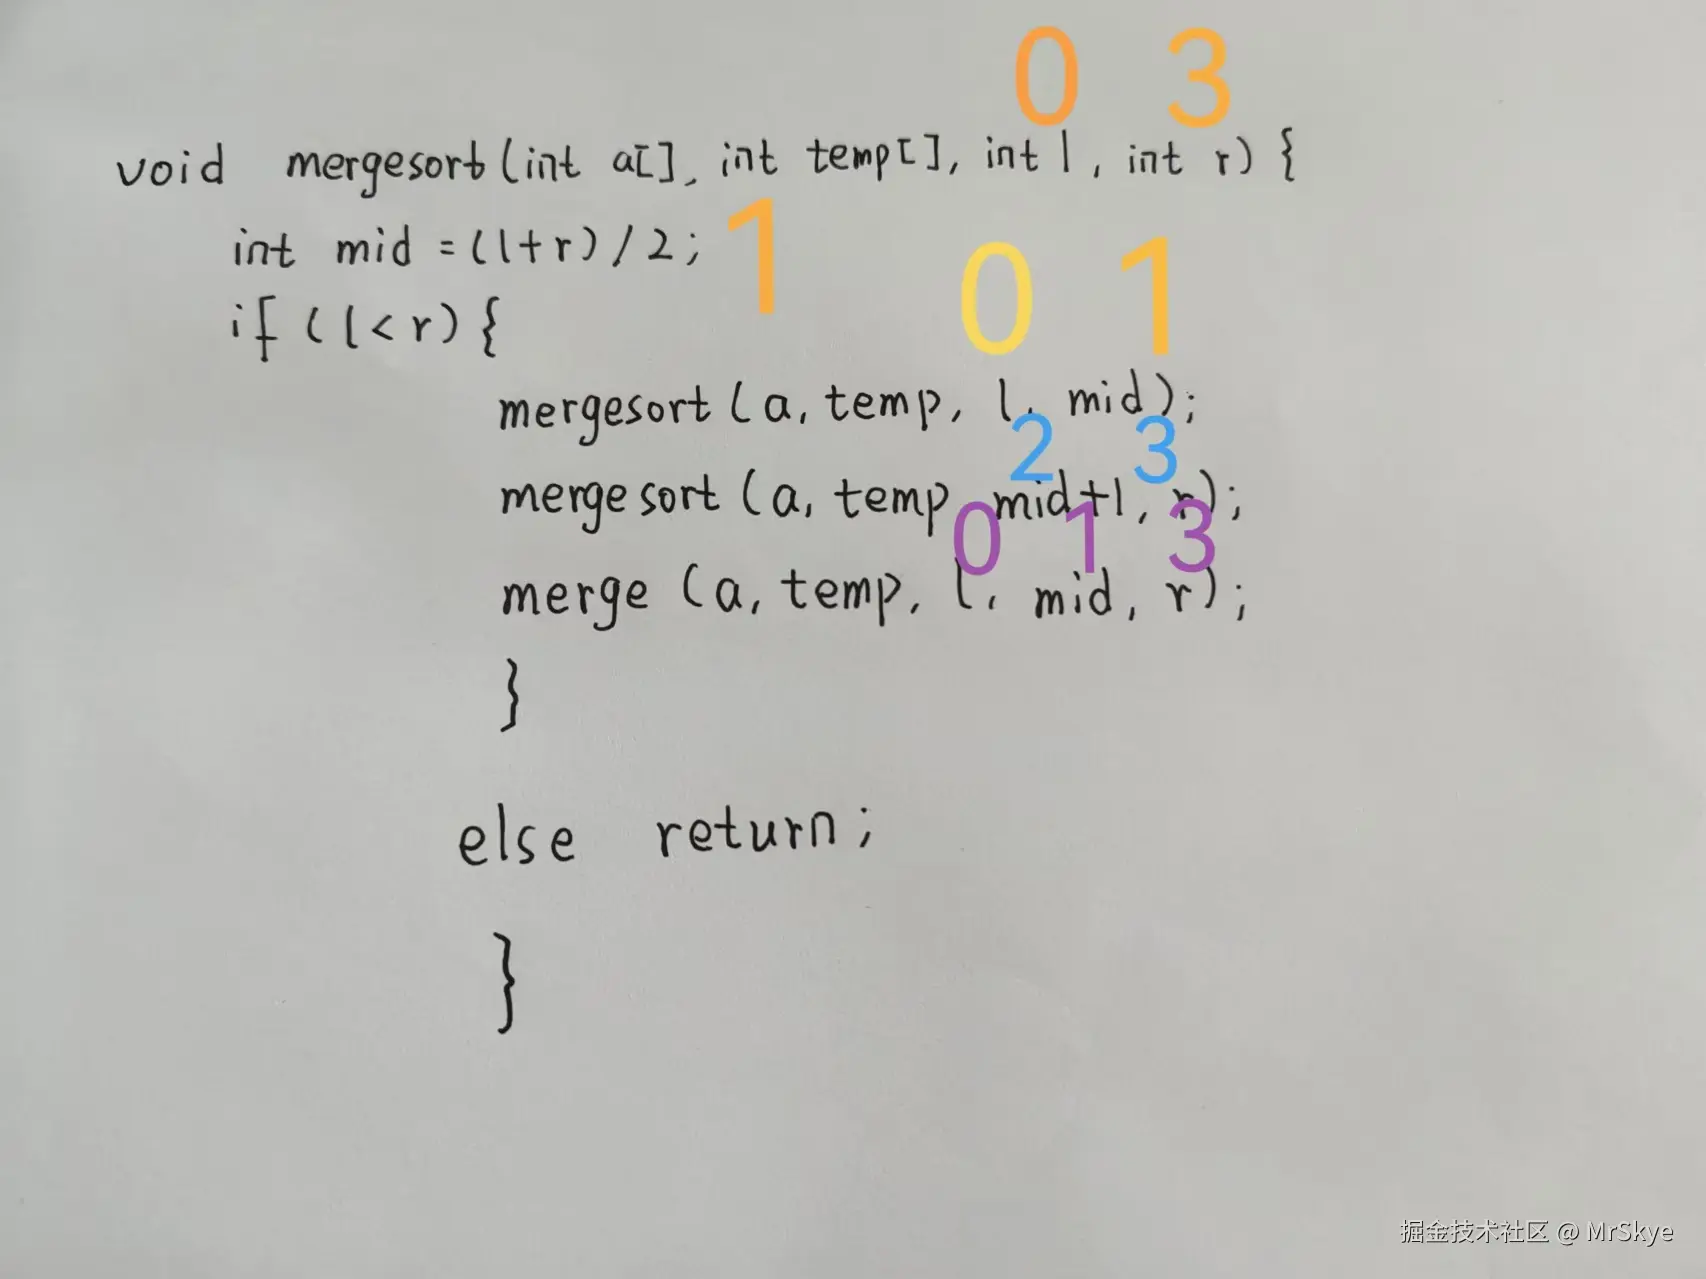 0 3
void mergesort(int a[], int temp[], int l, int r) {
int mid = (l+r)/2; 1
0 1
if (l<r) {
mergesort(a, temp, l, mid);
2 3
mergesort(a, temp, mid+1, r);
0 1 3
merge (a, temp, l, mid, r);
}
else return;
}
掘金技术社区 @ MrSkye